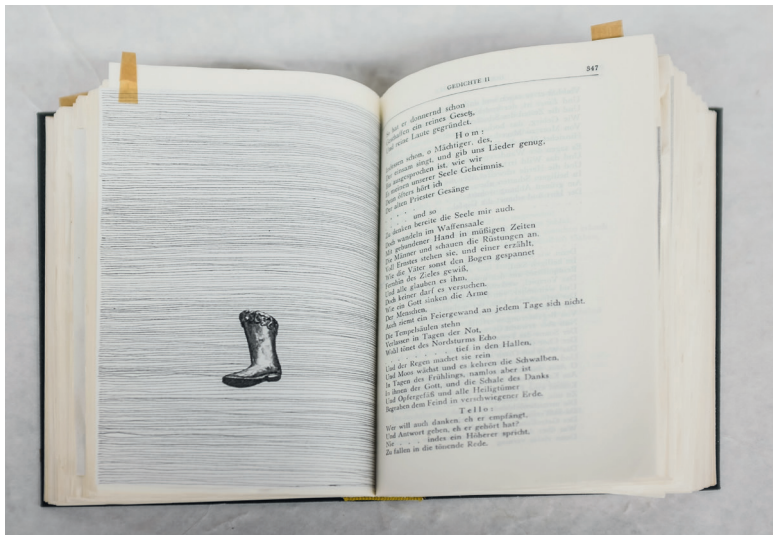 GEDICHTE II
547
er donnernd schon
ein reines Gesetz,
reine Laute gegründet.
Hom:
schon, o Mächtiger, des,
einsam singt, und gib uns Lieder genug,
ausgesprochen ist, wie wir
Es meinen unserer Seele Geheimnis.
Denn öfters hört ich
Der alten Priester Gesänge
. . . . und so
Zu danken bereite die Seele mir auch.
Doch wandeln im Waffensaale
Mit gebundener Hand in müßigen Zeiten
Die Männer und schauen die Rüstungen an,
Voll Ernstes stehen sie, und einer erzählt,
Wie die Väter sonst den Bogen gespannet
Fernhin des Zieles gewiß,
Und alle glauben es ihm,
Doch keiner darf es versuchen.
Wie ein Gott sinken die Arme
Der Menschen,
Auch ziemt ein Feiergewand an jedem Tage sich nicht.
Die Tempelsäulen stehn
Verlassen in Tagen der Not,
Wohl tönet des Nordsturms Echo
. . . . . . . . tief in den Hallen,
Und der Regen machet sie rein
Und Moos wächst und es kehren die Schwalben,
In Tagen des Frühlings, namlos aber ist
In ihnen der Gott, und die Schale des Danks
Und Opfergefäß und alle Heiligtümer
Begraben dem Feind in verschwiegener Erde.
Tello:
Wer will auch danken, eh er empfängt,
Und Antwort geben, eh er gehört hat?
Ni . . . . indes ein Höherer spricht,
Zu fallen in die tönende Rede.